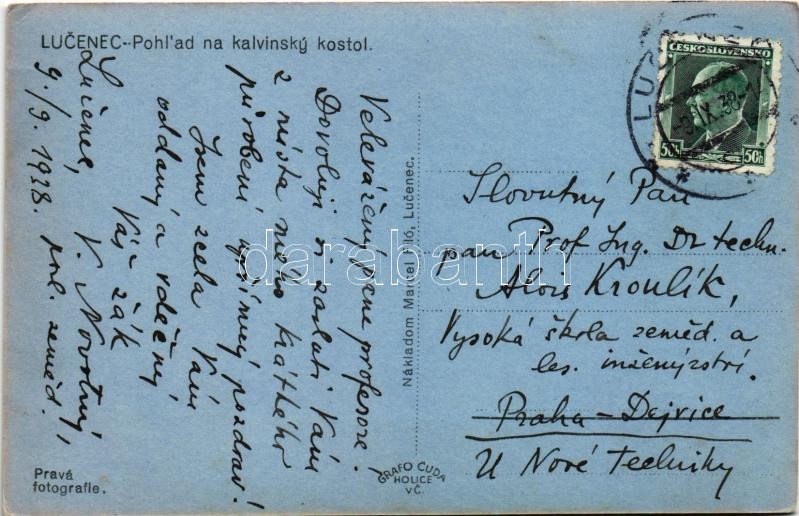 LUČENEC--Pohľad na kalvinský kostol.
Velevážený pane profesore!
Dovoluji si zaslati Vám
z místa mého krátkého
působení upřímný pozdrav!
Jsem zcela Vám
oddaný a vděčný
Váš žák
V. Novotný,
Lučenec,
9./9. 1938. zeměd.
Nákladom Marcel Filó, Lučenec.
LUČENEC
-9.IX.38-
ČESKOSLOVENSKO
50h 50h
Slovutný Pan
pan Prof Ing. Dr techn.
Alois Kroulík,
Vysoká škola zeměd. a
les. inženýrství.
Praha - Dejvice
U Nové Techniky
Pravá
fotografie.
GRAFO ČUDA
HOLICE
VČ.
darabanth